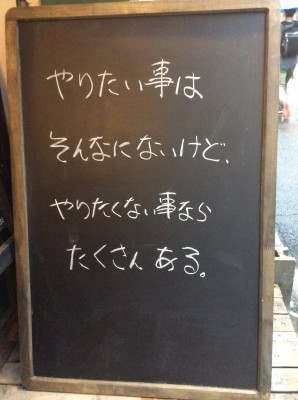 やりたい事は
そんなにないけど、
やりたくない事なら
たくさんある。